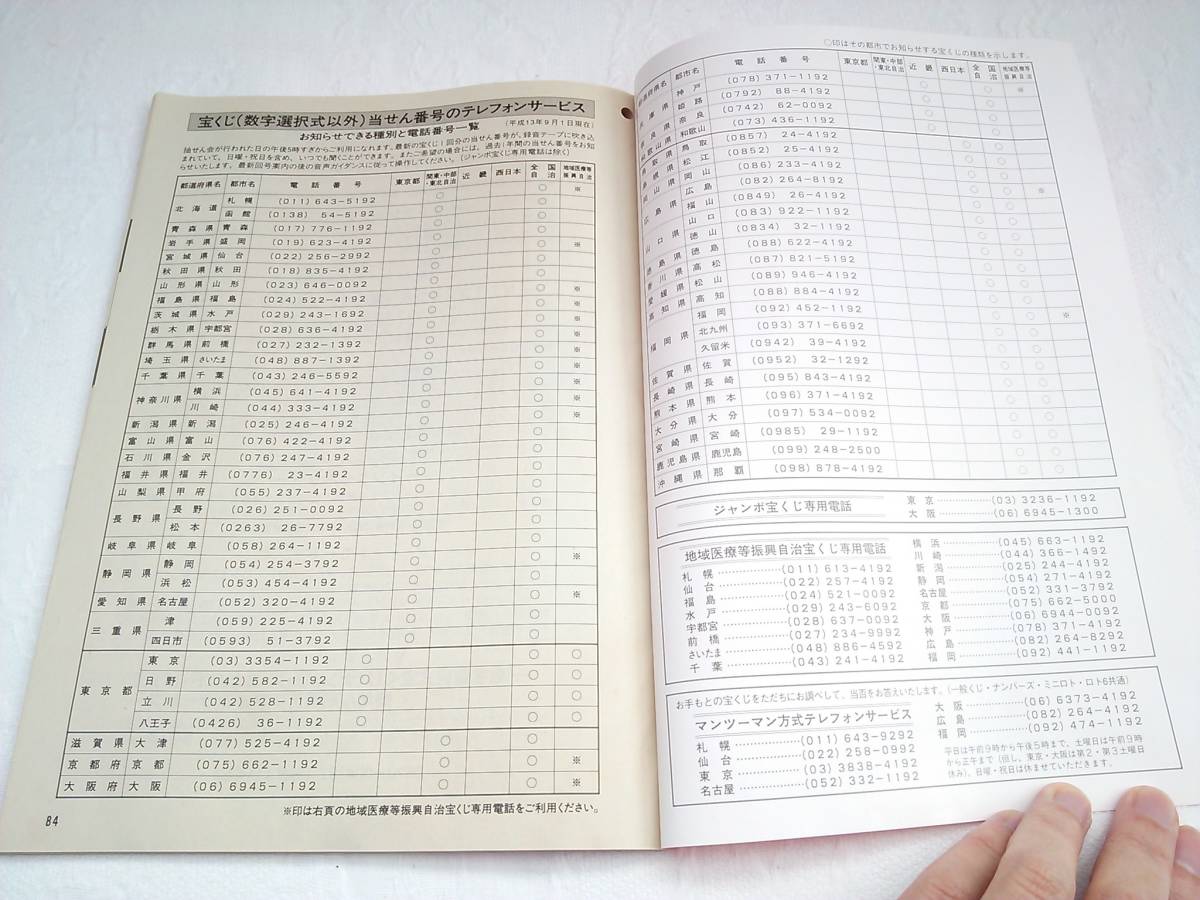 宝くじ(数字選択式以外)当せん番号のテレフォンサービス
お知らせできる種別と電話番号一覧 (平成13年9月1日現在)
抽せん会が行われた日の午後5時すぎからご利用になれます。最新の宝くじ1回分の当せん番号が、録音テープに吹き込
まれていて、日曜・祝日を含め、いつでも聞くことができます。またご希望の場合には、過去1年間の当せん番号をお知
らせいたします。最新回号案内の後の音声ガイダンスに従って操作してください。(ジャンボ宝くじ専用電話は除く)
都道府県名 都市名 電話番号 東京都 関東・中部・東北自治 近畿 西日本 全国自治 地域医療等振興自治
北海道 札幌 (011) 643-5192 ○ ○ ※
函館 (0138) 54-5192 ○ ○
青森県 青森 (017) 776-1192 ○ ○
岩手県 盛岡 (019) 623-4192 ○ ○
宮城県 仙台 (022) 256-2992 ○ ○ ※
秋田県 秋田 (018) 835-4192 ○ ○
山形県 山形 (023) 646-0092 ○ ○
福島県 福島 (024) 522-4192 ○ ○ ※
茨城県 水戸 (029) 243-1692 ○ ○ ※
栃木県 宇都宮 (028) 636-4192 ○ ○ ※
群馬県 前橋 (027) 232-1392 ○ ○ ※
埼玉県 さいたま (048) 887-1392 ○ ○ ※
千葉県 千葉 (043) 246-5592 ○ ○ ※
神奈川県 横浜 (045) 641-4192 ○ ○ ※
川崎 (044) 333-4192 ○ ○ ※
新潟県 新潟 (025) 246-4192 ○ ○ ※
富山県 富山 (076) 422-4192 ○ ○
石川県 金沢 (076) 247-4192 ○ ○
福井県 福井 (0776) 23-4192 ○ ○
山梨県 甲府 (055) 237-4192 ○ ○
長野県 長野 (026) 251-0092 ○ ○
松本 (0263) 26-7792 ○ ○
岐阜県 岐阜 (058) 264-1192 ○ ○
静岡県 静岡 (054) 254-3792 ○ ○ ※
浜松 (053) 454-4192 ○ ○
愛知県 名古屋 (052) 320-4192 ○ ○ ※
三重県 津 (059) 225-4192 ○ ○
四日市 (0593) 51-3792 ○ ○
東京都 東京 (03) 3354-1192 ○ ○ ○
日野 (042) 582-1192 ○ ○ ○
立川 (042) 528-1192 ○ ○ ○
八王子 (0426) 36-1192 ○ ○ ○
滋賀県 大津 (077) 525-4192 ○ ○
京都府 京都 (075) 662-1192 ○ ○ ※
大阪府 大阪 (06) 6945-1192 ○ ○ ※
※印は右頁の地域医療等振興自治宝くじ専用電話をご利用ください。
84
○印はその都市でお知らせする宝くじの種類を示します。
都道府県名 都市名 電話番号 東京都 関東・中部・東北自治 近畿 西日本 全国自治 地域医療等振興自治
兵庫県 神戸 (078) 371-1192 ○ ○ ※
姫路 (0792) 88-4192 ○ ○
奈良県 奈良 (0742) 62-0092 ○ ○
和歌山県 和歌山 (073) 436-1192 ○ ○
鳥取県 鳥取 (0857) 24-4192 ○ ○
島根県 松江 (0852) 25-4192 ○ ○
岡山県 岡山 (086) 233-4192 ○ ○
広島県 広島 (082) 264-8192 ○ ○ ※
福山 (0849) 26-4192 ○ ○
山口県 山口 (083) 922-1192 ○ ○
徳山 (0834) 32-1192 ○ ○
徳島県 徳島 (088) 622-4192 ○ ○
香川県 高松 (087) 821-5192 ○ ○
愛媛県 松山 (089) 946-4192 ○ ○
高知県 高知 (088) 884-4192 ○ ○
福岡県 福岡 (092) 452-1192 ○ ○ ※
北九州 (093) 371-6692 ○ ○
久留米 (0942) 39-4192 ○ ○
佐賀県 佐賀 (0952) 32-1292 ○ ○
長崎県 長崎 (095) 843-4192 ○ ○
熊本県 熊本 (096) 371-4192 ○ ○
大分県 大分 (097) 534-0092 ○ ○
宮崎県 宮崎 (0985) 29-1192 ○ ○
鹿児島県 鹿児島 (099) 248-2500 ○ ○
沖縄県 那覇 (098) 878-4192 ○ ○
ジャンボ宝くじ専用電話
東京……………(03) 3236-1192
大阪……………(06) 6945-1300
地域医療等振興自治宝くじ専用電話
札幌……………(011) 613-4192
仙台……………(022) 257-4192
福島……………(024) 521-0092
水戸……………(029) 243-6092
宇都宮……………(028) 637-0092
前橋……………(027) 234-9992
さいたま……………(048) 886-4592
千葉……………(043) 241-4192
横浜……………(045) 663-1192
川崎……………(044) 366-1492
新潟……………(025) 244-4192
静岡……………(054) 271-4192
名古屋……………(052) 331-3792
京都……………(075) 662-5000
大阪……………(06) 6944-0092
神戸……………(078) 371-4192
広島……………(082) 264-8292
福岡……………(092) 441-1192
お手もとの宝くじをただちにお調べして、当否をお答えいたします。(一般くじ・ナンバーズ・ミニロト・ロト6共通)
マンツーマン方式テレフォンサービス
札幌……………(011) 643-9292
仙台……………(022) 258-0992
東京……………(03) 3838-4192
名古屋……………(052) 332-1192
大阪……………(06) 6373-4192
広島……………(082) 264-4192
福岡……………(092) 474-1192
平日は午前9時から午後5時まで、土曜日は午前9時
から正午まで(但し、東京・大阪は第2・第3土曜日
休み)、日曜・祝日は休ませていただきます。